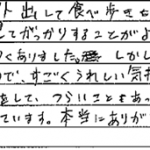 ト出して食べ歩きを
してがっかりすることがよ
くありました。しかし
で、すごくうれしい気持
をして、つらいこともあっ
ています。本当にありが